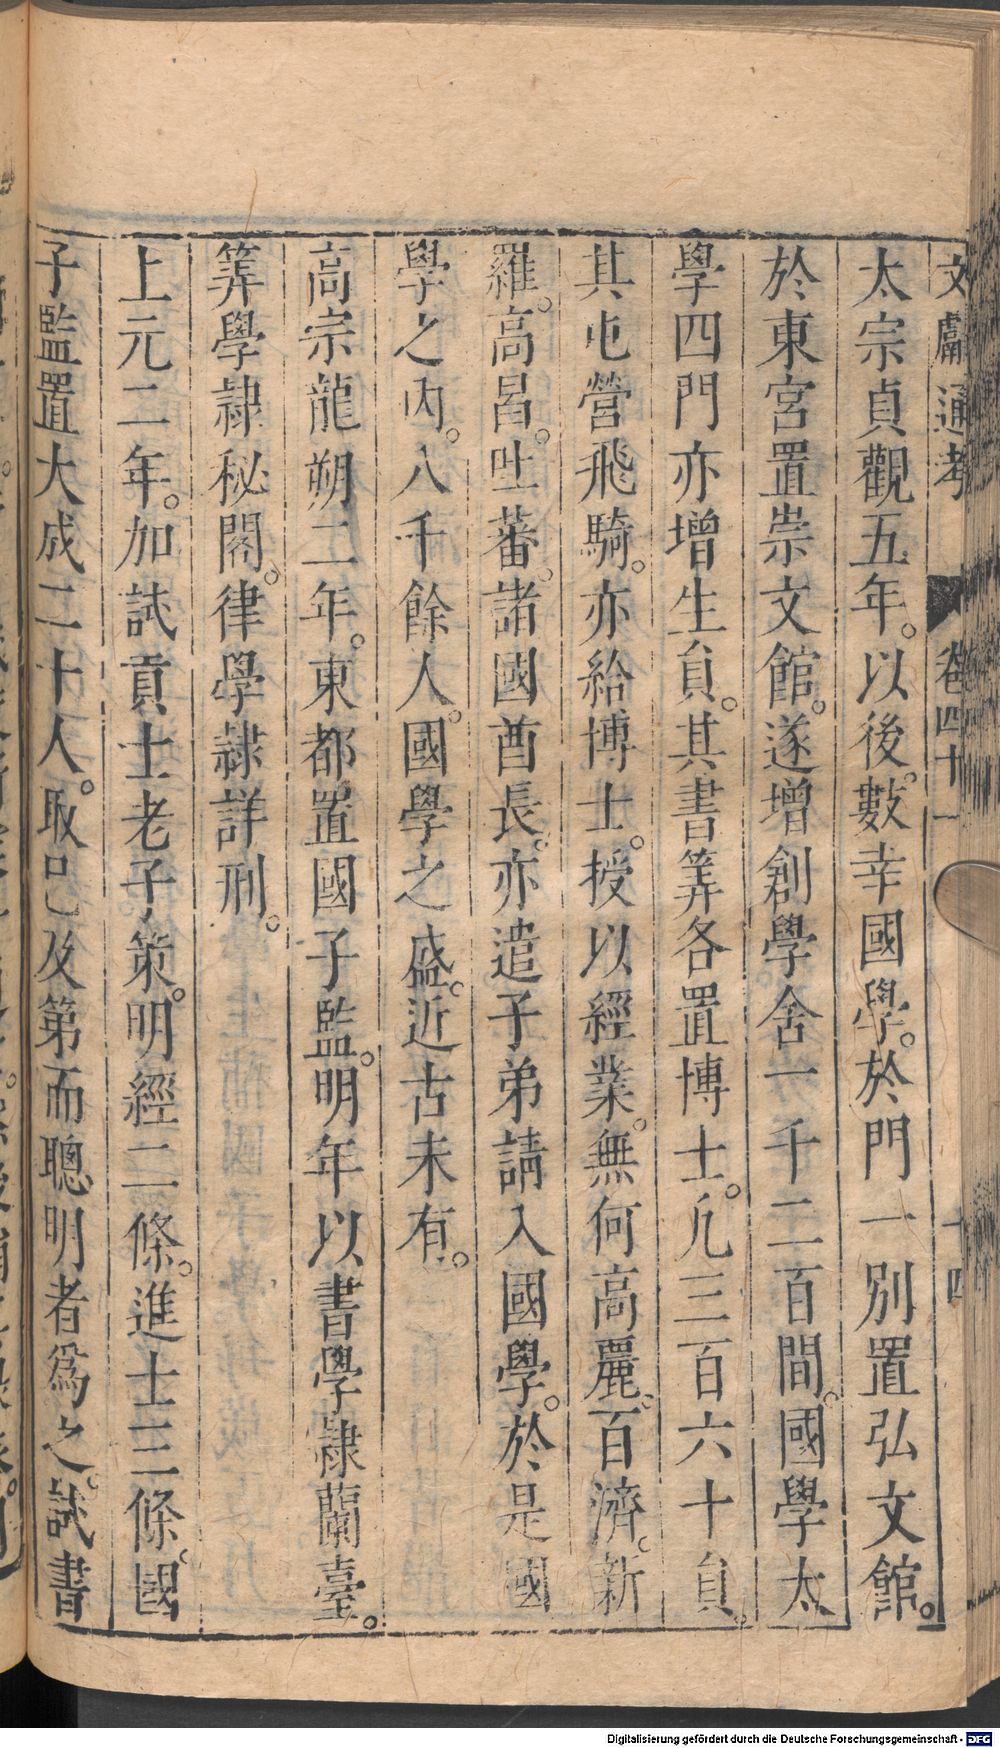 文獻通考 卷四十一 十四
太宗貞觀五年。以後。數幸國學。於門一別置弘文館。
於東宮置崇文館。遂增創學舍一千二百間。國學太
學四門亦增生員。其書筭各置博士。凡三百六十員。
其屯營飛騎。亦給博士。授以經業。無何高麗。百濟。新
羅。高昌。吐蕃。諸國酋長。亦遣子弟請入國學。於是國
學之內。八千餘人。國學之盛。近古未有。
高宗龍朔二年。東都置國子監。明年以書學隸蘭臺。
筭學隸秘閣。律學隸詳刑。
上元二年。加試貢士老子策。明經二條。進士三條。國
子監置大成二十人。取已及第而聰明者爲之。試書
Digitalisierung gefördert durch die Deutsche Forschungsgemeinschaft - DFG